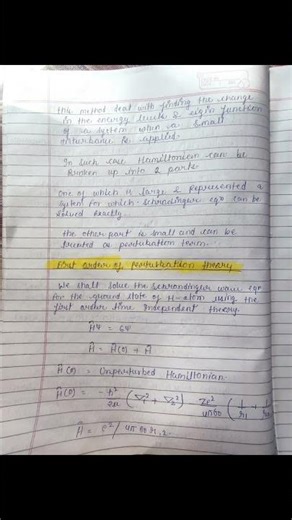 this method deal with finding the change
in the energy levels & eigen function
of a system when a small
disturbance is applied.
In such case Hamiltonian can be
broken up into 2 parts
One of which is large & represented a
system for which schrodinger eqn can be
solved exactly.
the other part is small and can be
treated as perturbation term.
First order of perturbation theory
We shall solve the Schrondinger wave eqn
for the ground state of H-atom using the
first order time independent theory.
ĤΨ = EΨ
Ĥ = Ĥ(0) + Ĥ
Ĥ(0) = Unperturbed Hamiltonian
Ĥ(0) = - ħ²/2m (∇₁² + ∇₂²) - Ze²/4πε0 (1/r1 + 1/
Ĥ = e²/4πε0 r12